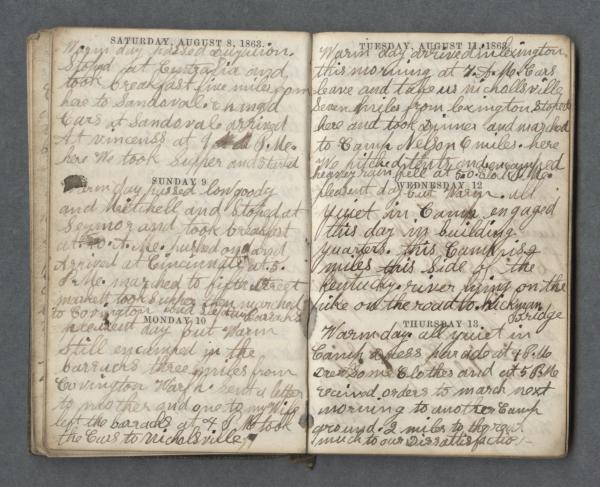 SATURDAY, AUGUST 8, 1863.
Warm day passed
Stoped at Centralia and
took breakfast five miles from
here to Sandoval chingd
Cars at Sandoval arrived
At vincenss at P. Me.
here We took Supper and started
SUNDAY 9
Warm day passed lowgoody
and Mitchell and Stoped at
Seymor and took breakfast
at 10. A. Me. pushed onward
Arrived at Cincinnate at 5.
P. Me. marched to fifth Street
market took Supper then marched
to Covington and
MONDAY 10
pleasent day but Warm
Still encamped in the
barracks three miles from
Covington Warm. Sent a letter
to mother and one to my Wife
left the barracks at 4 P. M. took
the Cars to Nicholsville,
TUESDAY, AUGUST 11, 1863.
Warm day arrived in lexington
this morning at 7. A. Me. Cars
leave and take us nichollsville
Seven miles from lexington Stoped
here and took Dinner and marched
to Camp Nelson 6 miles. here
We pitched tents and encamped
heavey rain fell at 6.o.clock P. Me.
WEDNESDAY, 12
pleasent day but Warm. all
quiet in Camp engaged
this day in building
quarters. this Camp is 9
miles this side of the
Kentucky river lying on the
pike on the road to Hickman
bridge
THURSDAY 13.
Warm day. all quiet in
Camp Dress parade at 4 P. Mo
Drew Some Clothes and at 5 P. Me
recived orders to march next
morning to another Camp
ground. 2 miles to the
much to our Dissattisfactio.-